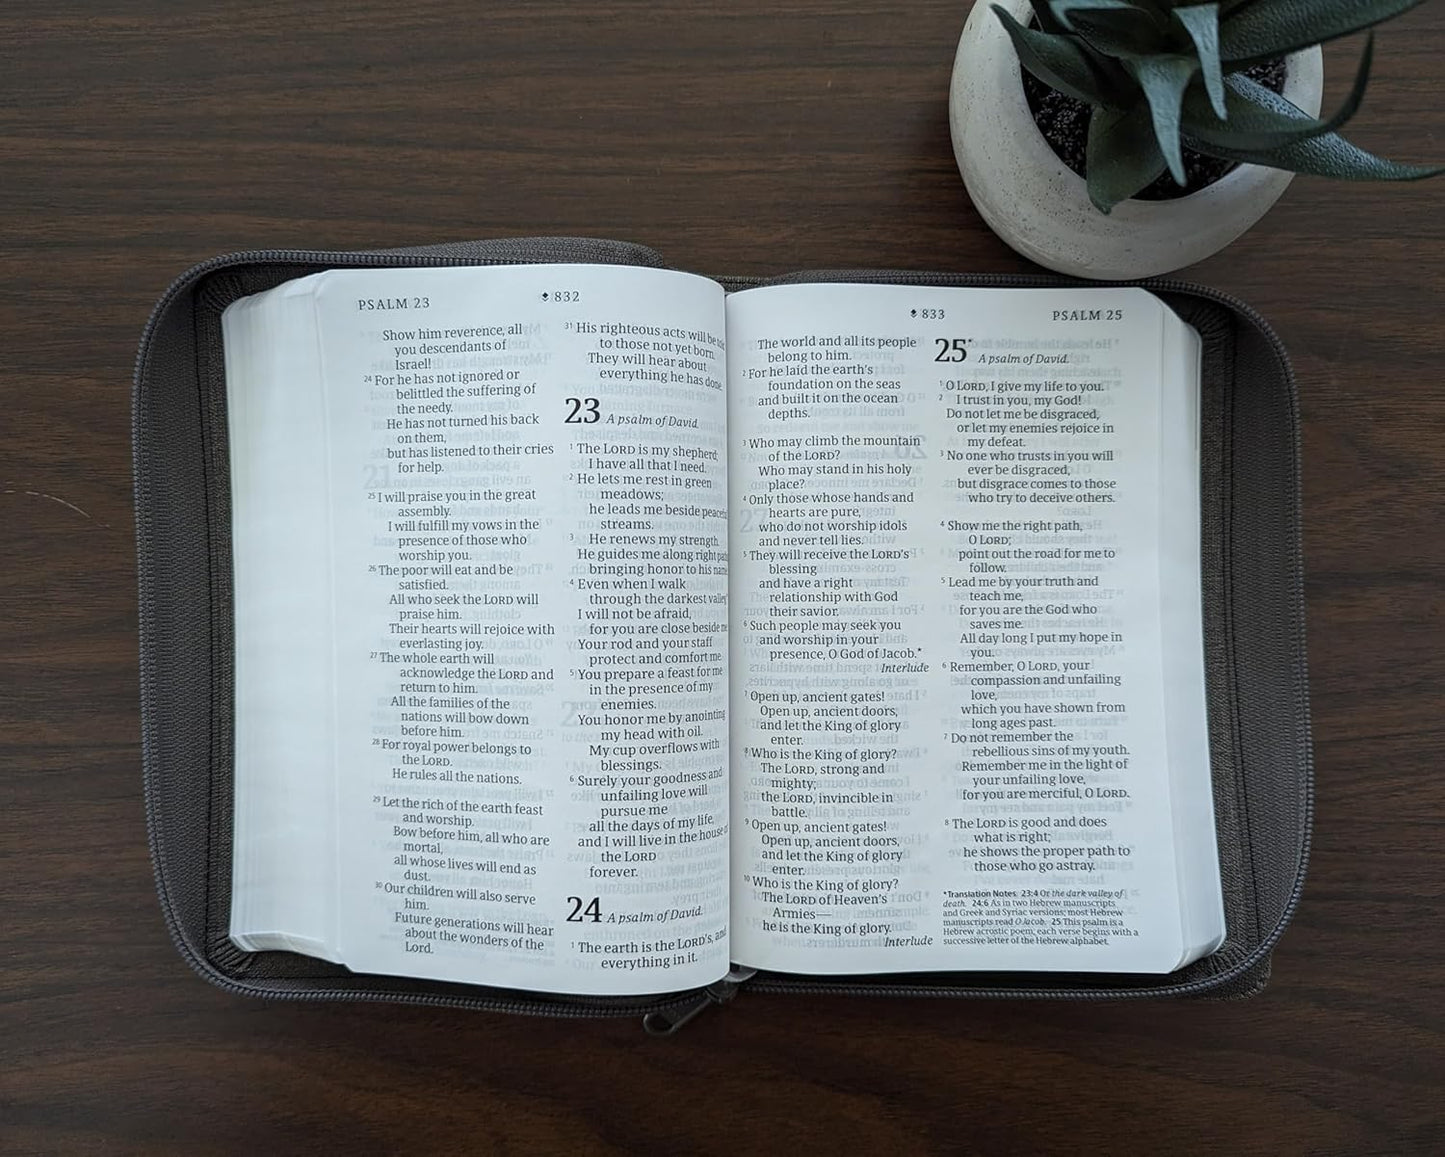 PSALM 23
832
Show him reverence, all
you descendants of
Israel!
24 For he has not ignored or
belittled the suffering of
the needy.
He has not turned his back
on them,
but has listened to their cries
for help.
25 I will praise you in the great
assembly.
I will fulfill my vows in the
presence of those who
worship you.
26 The poor will eat and be
satisfied.
All who seek the LORD will
praise him.
Their hearts will rejoice with
everlasting joy.
27 The whole earth will
acknowledge the LORD and
return to him.
All the families of the
nations will bow down
before him.
28 For royal power belongs to
the LORD.
He rules all the nations.
29 Let the rich of the earth feast
and worship.
Bow before him, all who are
mortal,
all whose lives will end as
dust.
30 Our children will also serve
him.
Future generations will hear
about the wonders of the
Lord.
31 His righteous acts will be
to those not yet born.
They will hear about
everything he has done.
23 A psalm of David.
1 The LORD is my shepherd;
I have all that I need.
2 He lets me rest in green
meadows;
he leads me beside
streams.
3 He renews my strength.
He guides me along right
bringing honor to his name.
4 Even when I walk
through the darkest valley,
I will not be afraid,
for you are close beside
Your rod and your staff
protect and comfort me.
5 You prepare a feast for me
in the presence of my
enemies.
You honor me by anointing
my head with oil.
My cup overflows with
blessings.
6 Surely your goodness and
unfailing love will
pursue me
all the days of my life,
and I will live in the house of
the LORD
forever.
24 A psalm of David.
1 The earth is the LORD's, and
everything in it.
833
PSALM 25
The world and all its people
belong to him.
2 For he laid the earth's
foundation on the seas
and built it on the ocean
depths.
3 Who may climb the mountain
of the LORD?
Who may stand in his holy
place?
4 Only those whose hands and
hearts are pure,
who do not worship idols
and never tell lies.
5 They will receive the LORD's
blessing
and have a right
relationship with God
their savior.
6 Such people may seek you
and worship in your
presence, O God of Jacob.*
Interlude
7 Open up, ancient gates!
Open up, ancient doors,
and let the King of glory
enter.
8 Who is the King of glory?
The LORD, strong and
mighty;
the LORD, invincible in
battle.
9 Open up, ancient gates!
Open up, ancient doors,
and let the King of glory
enter.
10 Who is the King of glory?
The LORD of Heaven's
Armies—
he is the King of glory.
Interlude
25* A psalm of David.
1 O LORD, I give my life to you.
2 I trust in you, my God!
Do not let me be disgraced,
or let my enemies rejoice in
my defeat.
3 No one who trusts in you will
ever be disgraced,
but disgrace comes to those
who try to deceive others.
4 Show me the right path,
O LORD;
point out the road for me to
follow.
5 Lead me by your truth and
teach me,
for you are the God who
saves me.
All day long I put my hope in
you.
6 Remember, O LORD, your
compassion and unfailing
love,
which you have shown from
long ages past.
7 Do not remember the
rebellious sins of my youth.
Remember me in the light of
your unfailing love,
for you are merciful, O LORD.
8 The LORD is good and does
what is right;
he shows the proper path to
those who go astray.
*Translation Notes 23:4 Or the dark valley of
death. 24:6 As in two Hebrew manuscripts
and Greek and Syriac versions; most Hebrew
manuscripts read O Jacob. 25 This psalm is a
Hebrew acrostic poem; each verse begins with a
successive letter of the Hebrew alphabet.